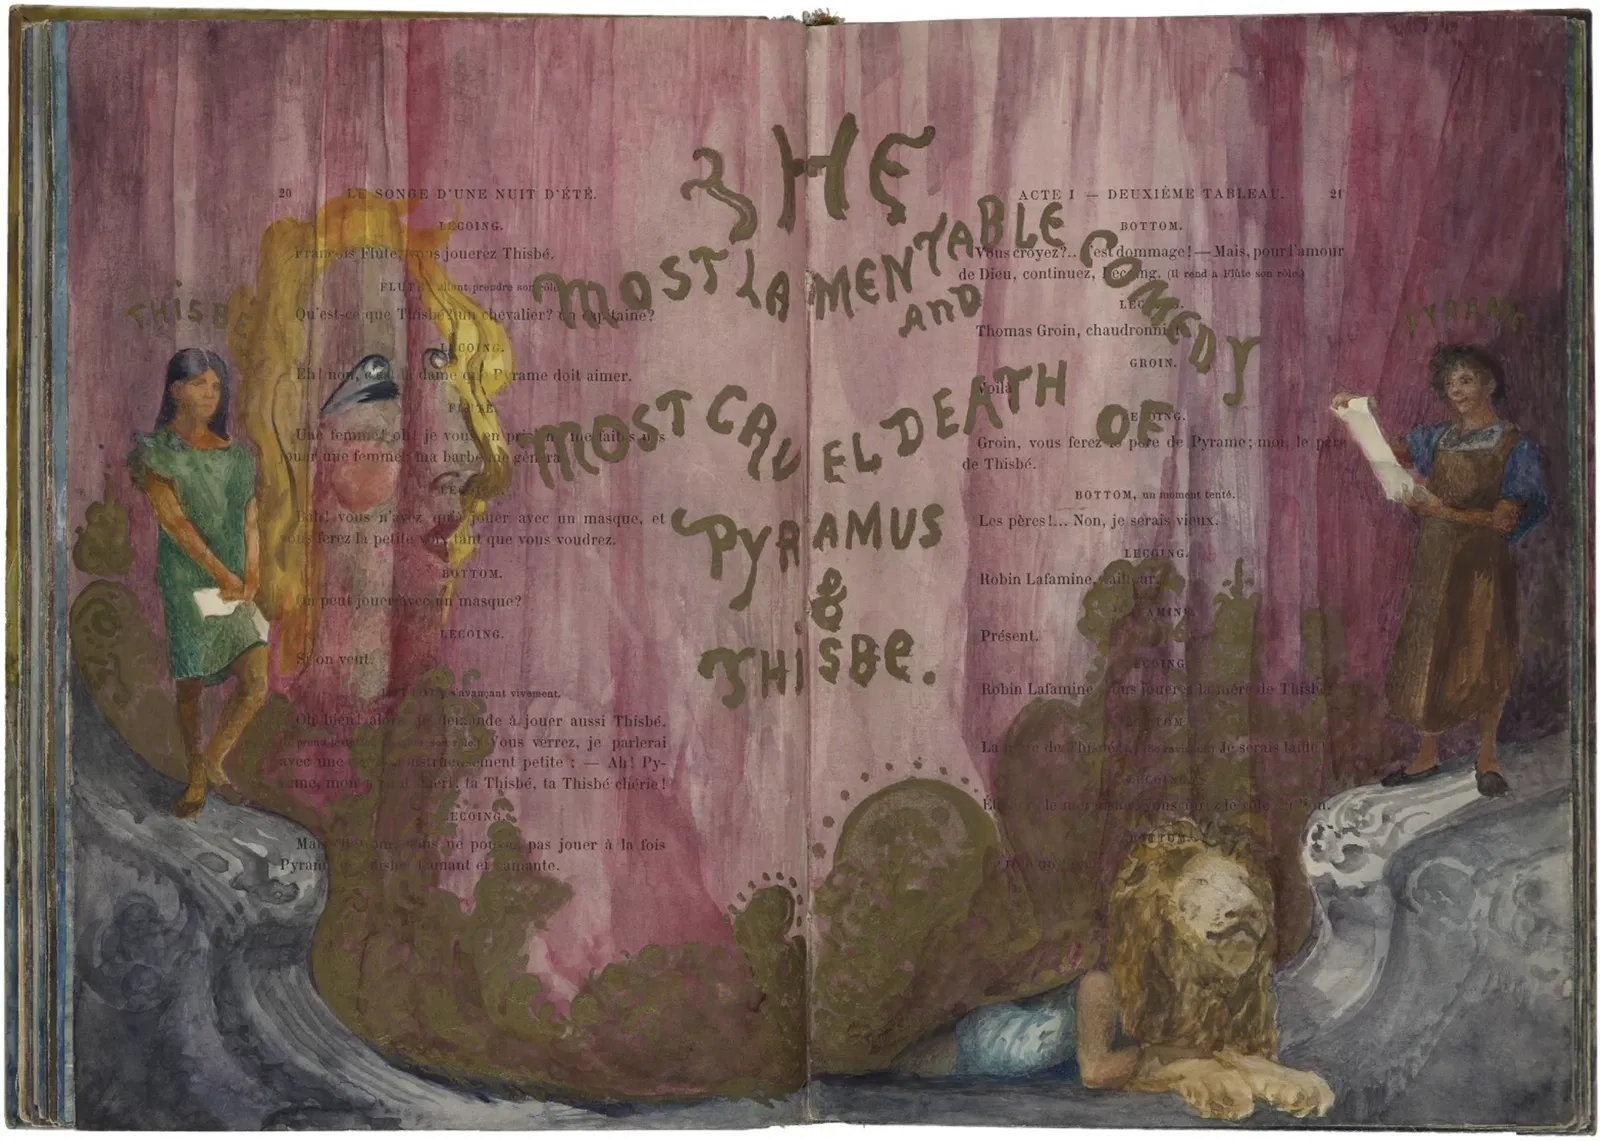 THE
MOST LAMENTABLE COMEDY
AND
MOST CRUEL DEATH OF
PYRAMUS
&
THISBE.
THISBE
PYRAME
20 LE SONGE D'UNE NUIT D'ÉTÉ.
LECOING.
François Flûte, vous jouerez Thisbé.
FLUTE, allant prendre son rôle.
Qu'est-ce que Thisbé? un chevalier? un capitaine?
LECOING.
Eh! non, c'est la dame que Pyrame doit aimer.
FLUTE.
Une femme! oh! je vous en prie, ne me faites pas
jouer une femme; ma barbe me gênera.
LECOING.
Bah! vous n'avez qu'à jouer avec un masque, et
vous ferez la petite voix tant que vous voudrez.
BOTTOM.
On peut jouer avec un masque?
LECOING.
Si on veut.
BOTTOM, s'avançant vivement.
Oh bien! alors je demande à jouer aussi Thisbé.
Vous verrez, je parlerai
avec une voix monstrueusement petite : — Ah! Py-
rame, mon amant chéri! ta Thisbé, ta Thisbé chérie!
LECOING.
Mais non, vous ne pouvez pas jouer à la fois
Pyrame et Thisbé, l'amant et l'amante.
ACTE I — DEUXIÈME TABLEAU. 21
BOTTOM.
Vous croyez?.. C'est dommage! — Mais, pour l'amour
de Dieu, continuez, Lecoing. (Il rend à Flûte son rôle.)
LECOING.
Thomas Groin, chaudronnier.
GROIN.
Voilà.
LECOING.
Groin, vous ferez le père de Pyrame; moi, le père
de Thisbé.
BOTTOM, un moment tenté.
Les pères!... Non, je serais vieux.
LECOING.
Robin Lafamine, tailleur.
LAFAMINE.
Présent.
LECOING.
Robin Lafamine, vous jouerez la mère de Thisbé.
BOTTOM.
La mère de Thisbé! Je serais laide!
LECOING.
vous le rôle du lion.
BOTTOM.